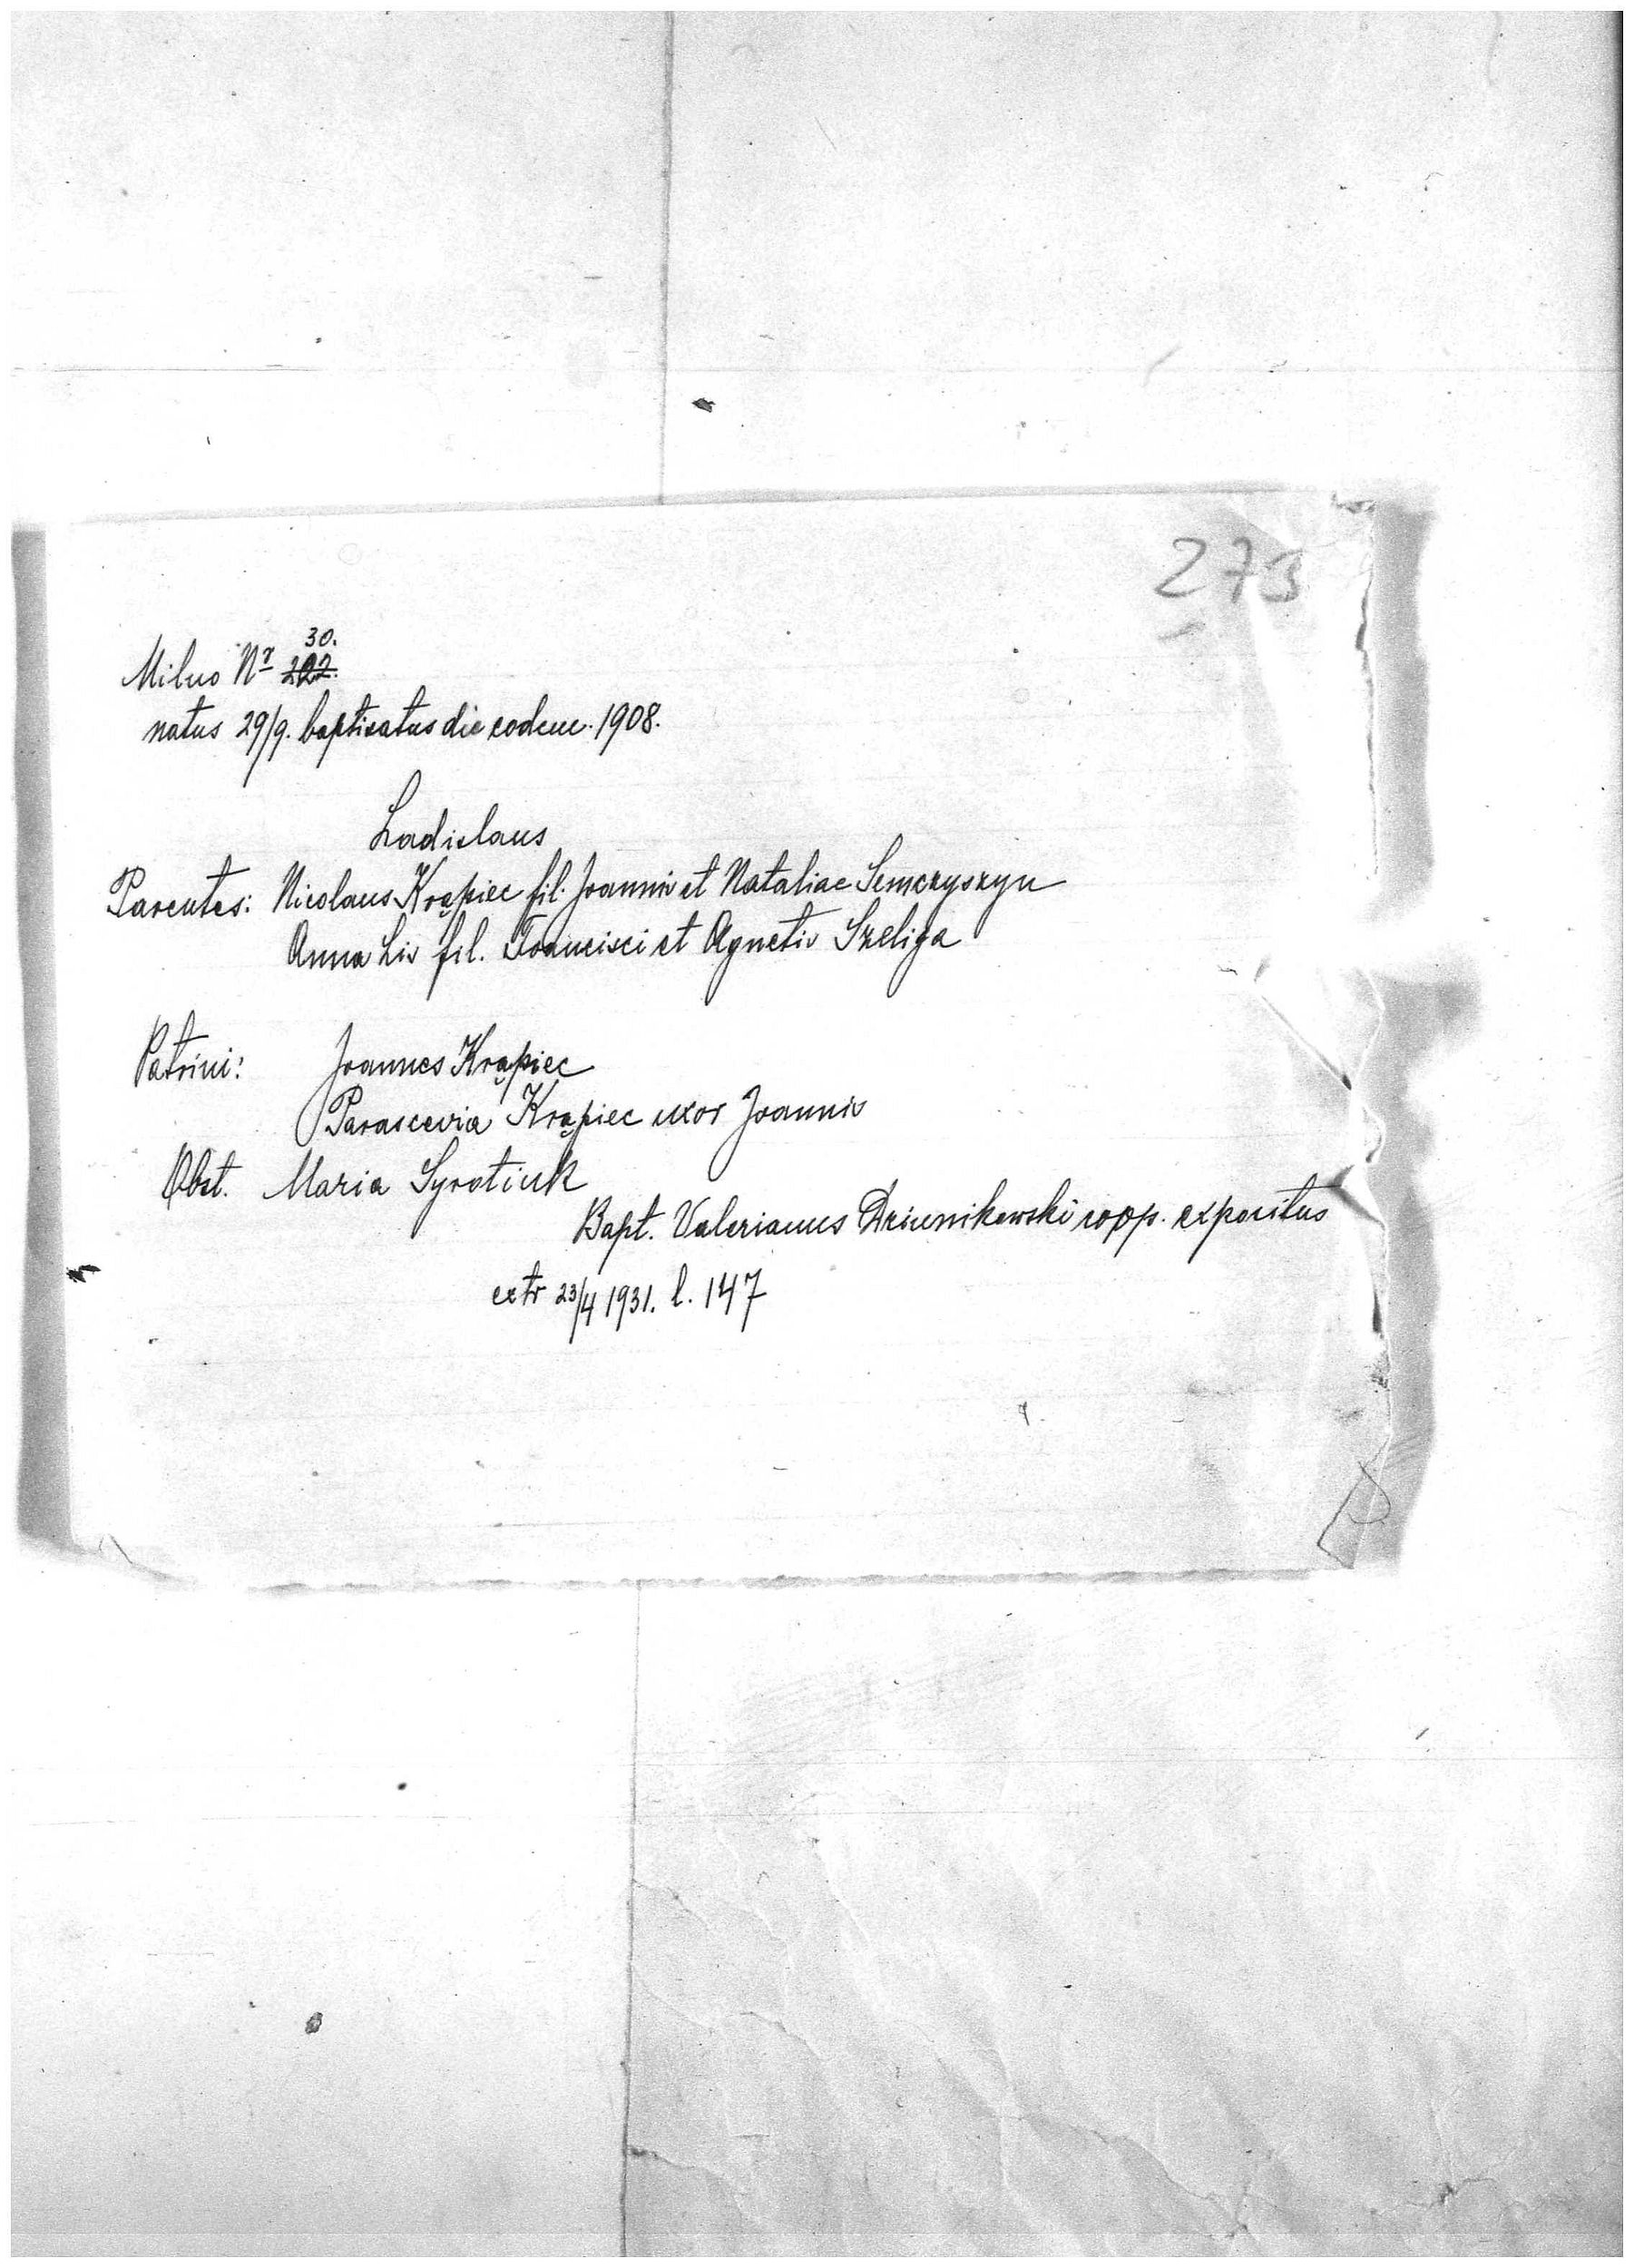 273
30.
Milno Nr 202.
natus 29/9. baptisatus die eodem. 1908.
Ladislaus
Parentes: Nicolaus Krąpiec fil. Joannis et Nataliae Semczyszyn
Anna Lis fil. Francisci et Agnetis Szeliga
Patrini: Joannes Krąpiec
Parascevia Krąpiec uxor Joannis
Obst. Maria Syrotiuk
Bapt. Valerianus Dziunikowski coop. expositus
extr 23/4 1931. l. 147